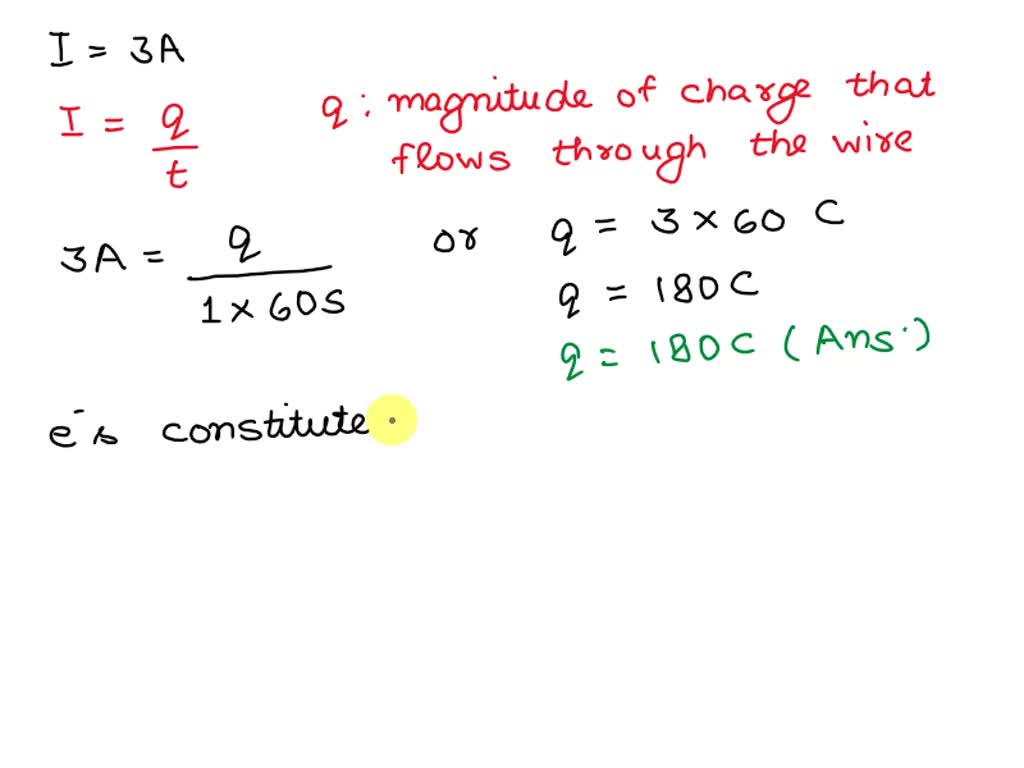 I = 3A
I = q/t
q : magnitude of charge that
flows through the wire
3A = q/(1 × 60S) or q = 3 × 60 C
q = 180C
q = 180C (Ans.)
e⁻s constitute